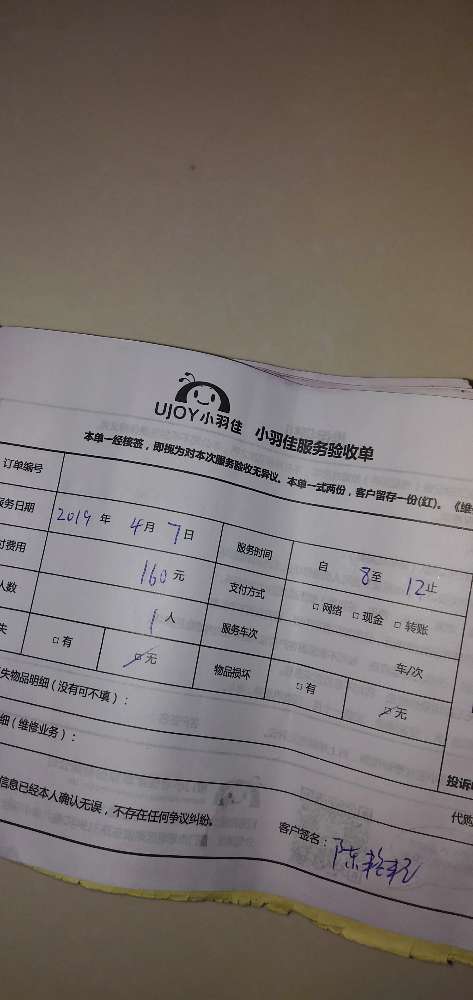 UJOY小羽佳 小羽佳服务验收单
本单一经核签，即视为对本次服务验收无异议。本单一式两份，客户留存一份(红)。《维
订单编号
服务日期 2019 年 4月 7日 服务时间 自 8至 12止
付费用 160元 支付方式 □ 网络 □ 现金 □ 转账
人数 1人 服务车次 车/次
失 □ 有 □ 无 物品损坏 □ 有 □ 无
失物品明细（没有可不填）：
细（维修业务）：
投诉
信息已经本人确认无误，不存在任何争议纠纷。
代购
客户签名：陈